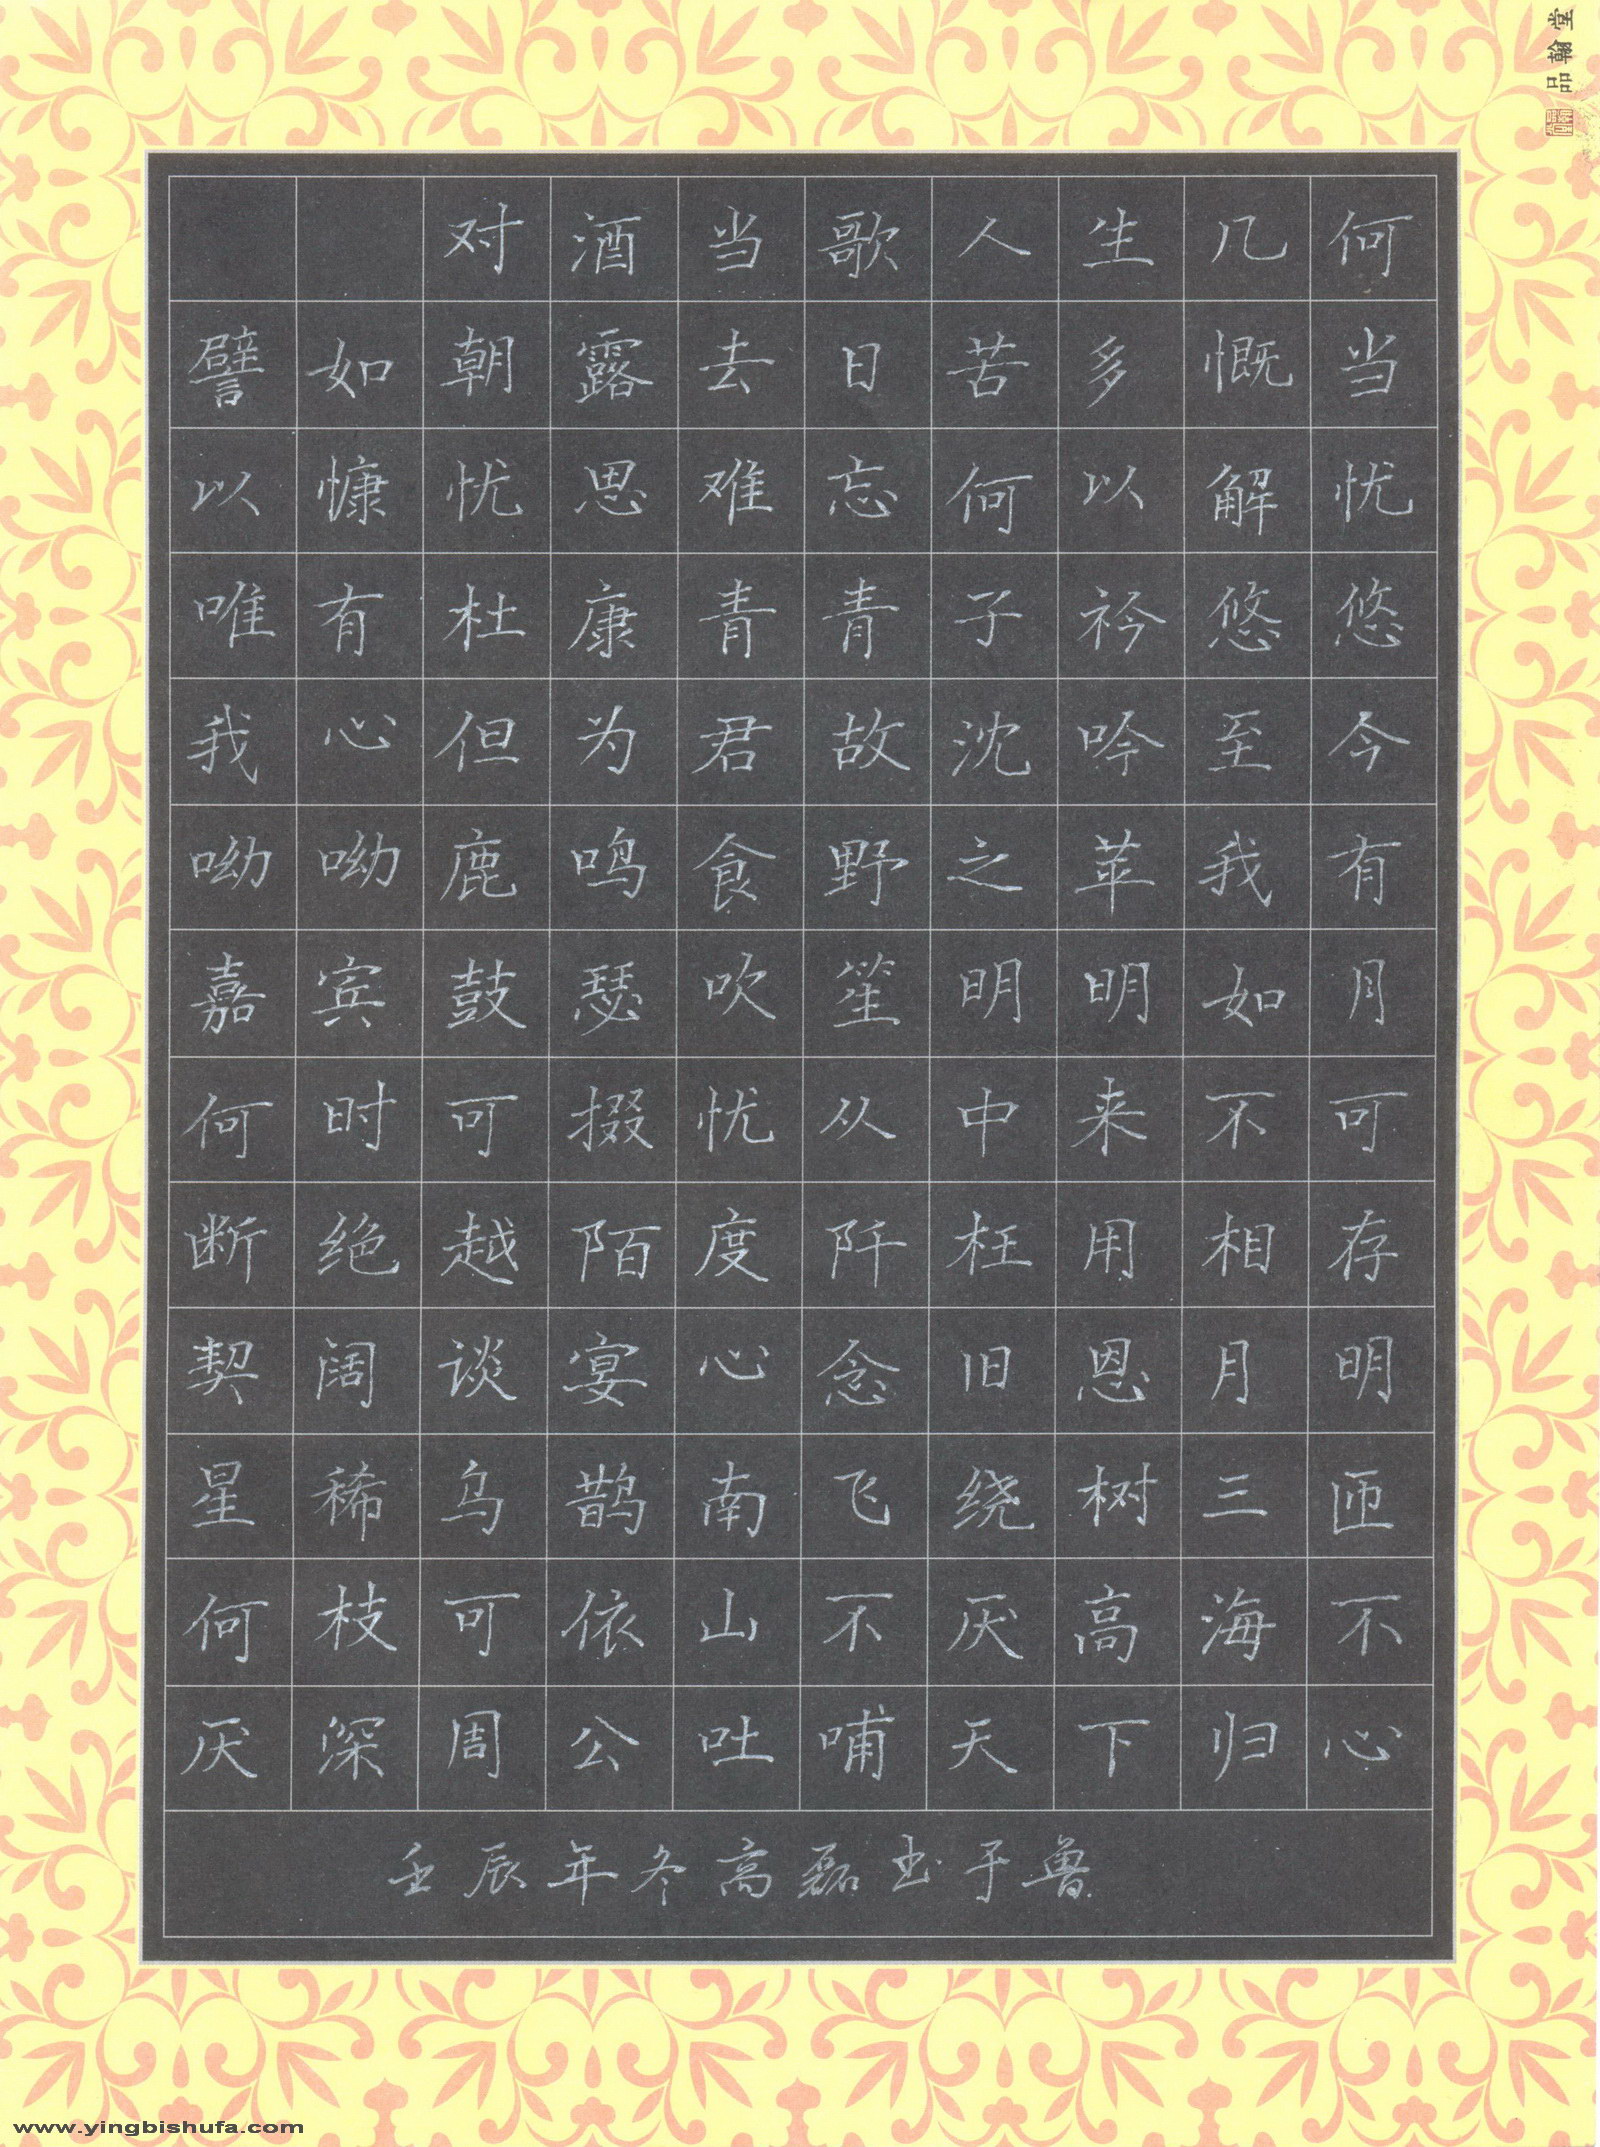 品翰堂
对酒当歌人生几何
譬如朝露去日苦多慨当
以慷忧思难忘何以解忧
唯有杜康青青子衿悠悠
我心但为君故沈吟至今
呦呦鹿鸣食野之苹我有
嘉宾鼓瑟吹笙明明如月
何时可掇忧从中来不可
断绝越陌度阡枉用相存
契阔谈宴心念旧恩月明
星稀乌鹊南飞绕树三匝
何枝可依山不厌高海不
厌深周公吐哺天下归心
壬辰年冬高磊书于鲁
www.yingbishufa.com